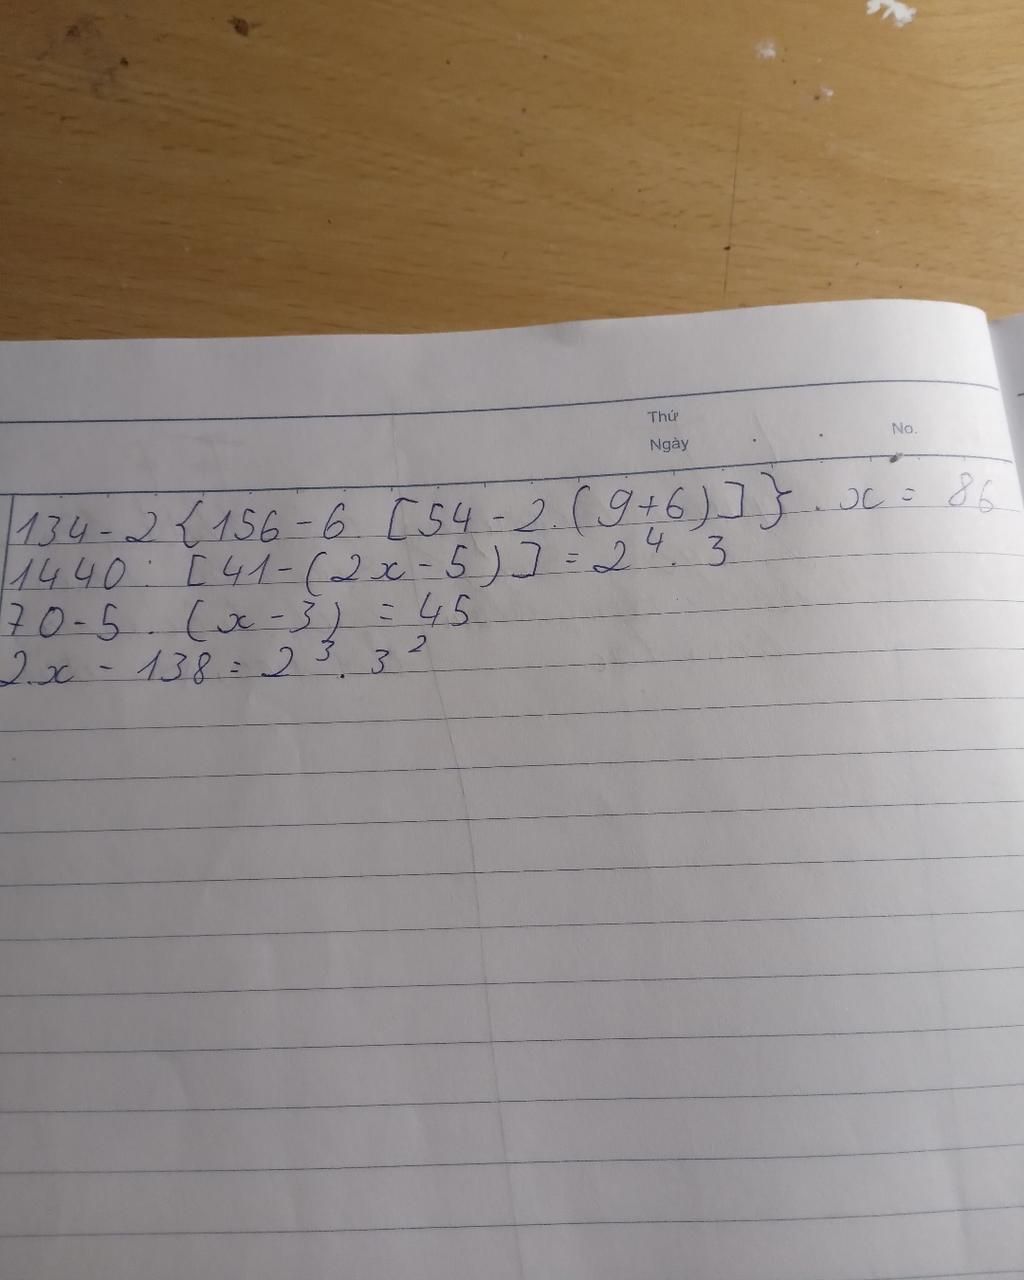 Thứ
Ngày . . No.
134 - 2 {156 - 6 [54 - 2.(9+6)]} . x = 86
1440 : [41 - (2x - 5)] = 2⁴ . 3
70 - 5 . (x - 3) = 45
2.x - 138 = 2³ . 3²